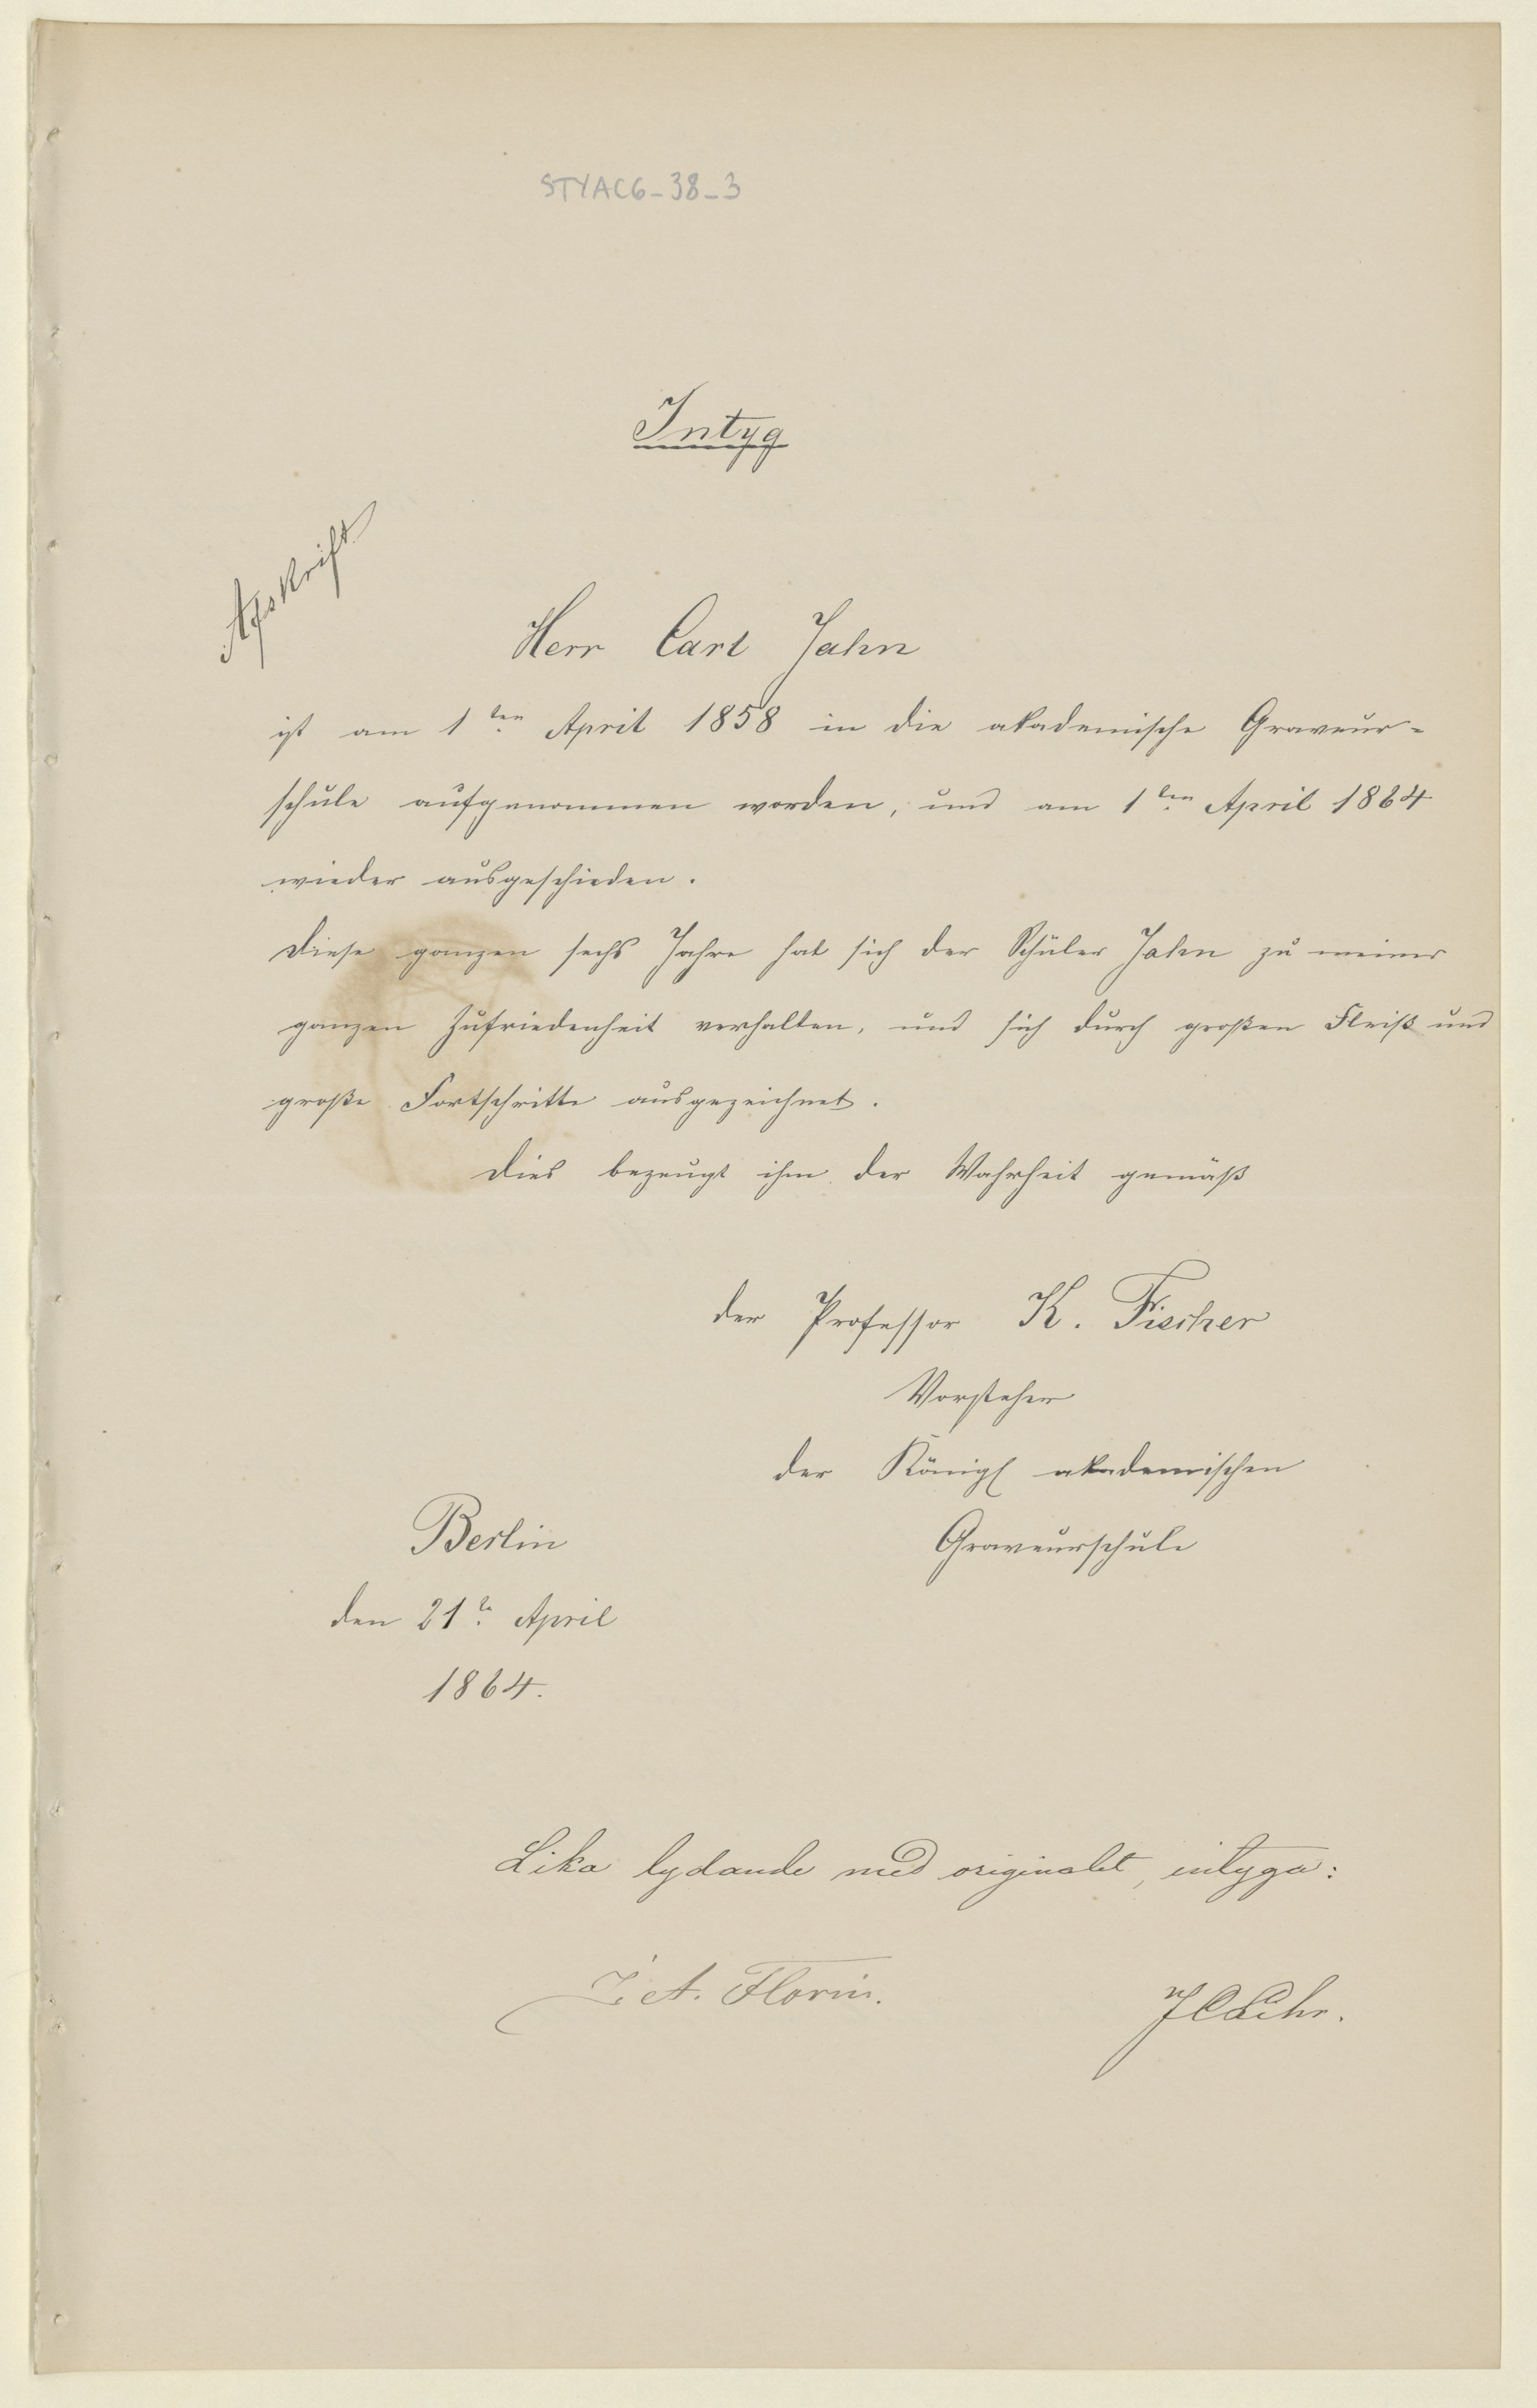 STYAC6-38-3
Intyg
Afskrift
Herr Carl Jahn
ist am 1ten April 1858 in die akademische Graveur-
schule aufgenommen worden, und am 1ten April 1864
wieder ausgeschieden.
Diese ganzen sechs Jahre hat sich der Schüler Jahn zu meiner
ganzen Zufriedenheit verhalten, und sich durch großen Fleiß und
große Fortschritte ausgezeichnet.
Dies bezeugt ihm der Wahrheit gemäß
der Professor K. Fischer
Vorsteher
der Königl akademischen
Graveurschule
Berlin
den 21t April
1864.
Lika lydande med originalet, intyga:
A. Florin.